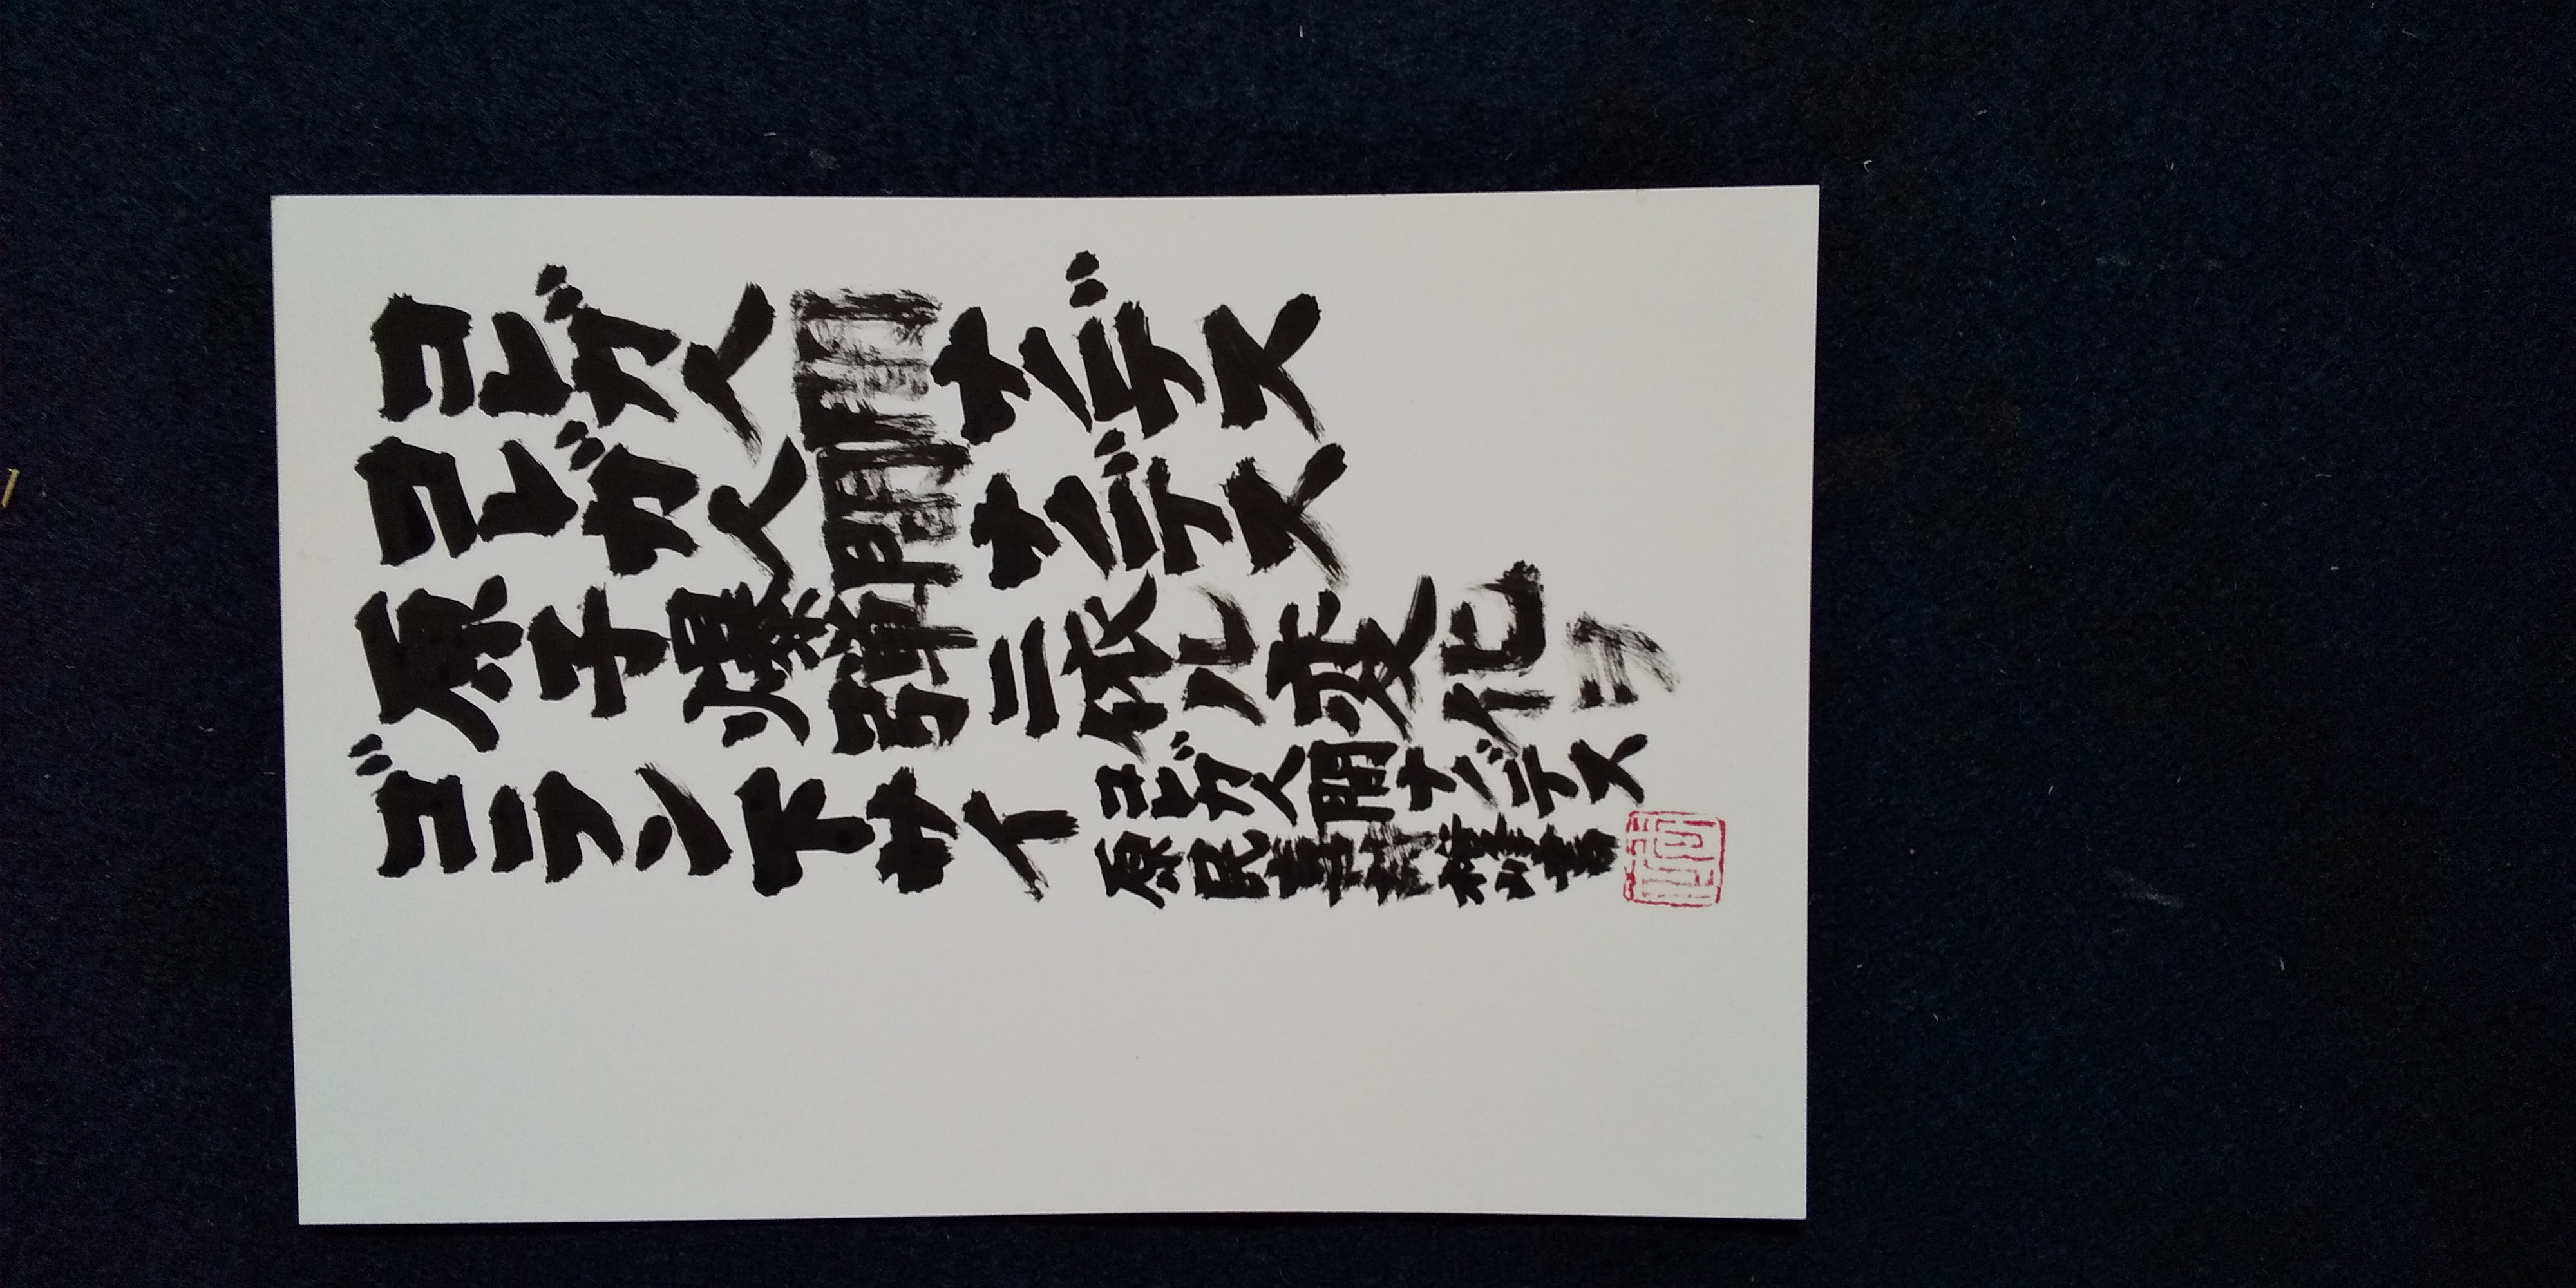 コレガ人間ナノデス
コレガ人間ナノデス
原子爆弾ニ依ル変化ヲ
ゴラン下サイ
コレガ人間ナノデス
原民喜 書